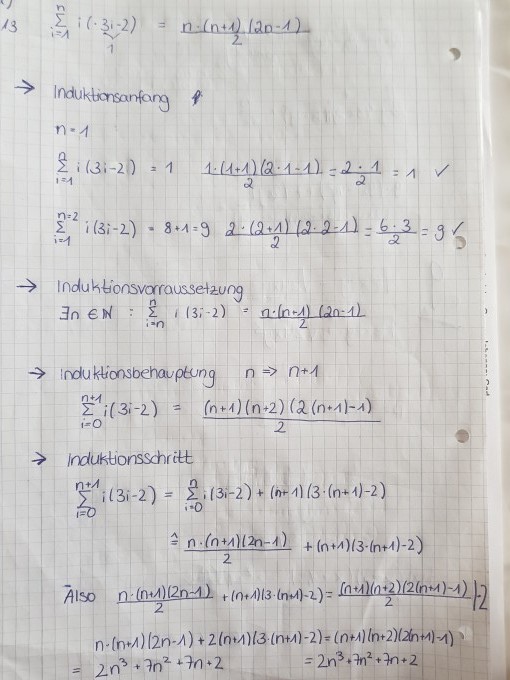 13 ∑_{i=1}^{n} i(·3i-2) = n·(n+1)(2n-1)/2
1
→ Induktionsanfang
n = 1
∑_{i=1}^{n} i(3i-2) = 1 1·(1+1)(2·1-1)/2 = 2·1/2 = 1 ✓
∑_{i=1}^{n=2} i(3i-2) = 8+1=9 2·(2+1)(2·2-1)/2 = 6·3/2 = 9 ✓
→ Induktionsvorraussetzung
∃n ∈ ℕ : ∑_{i=n}^{n} i(3i-2) = n·(n+1)(2n-1)/2
→ Induktionsbehauptung n => n+1
∑_{i=0}^{n+1} i(3i-2) = (n+1)(n+2)(2(n+1)-1)/2
→ Induktionsschritt
∑_{i=0}^{n+1} i(3i-2) = ∑_{i=0}^{n} i(3i-2) + (n+1)(3·(n+1)-2)
≙ n·(n+1)(2n-1)/2 + (n+1)(3·(n+1)-2)
Also n·(n+1)(2n-1)/2 + (n+1)(3·(n+1)-2) = (n+1)(n+2)(2(n+1)-1)/2 |·2
n·(n+1)(2n-1)+2(n+1)(3·(n+1)-2) = (n+1)(n+2)(2(n+1)-1)
= 2n³+7n²+7n+2 = 2n³+7n²+7n+2